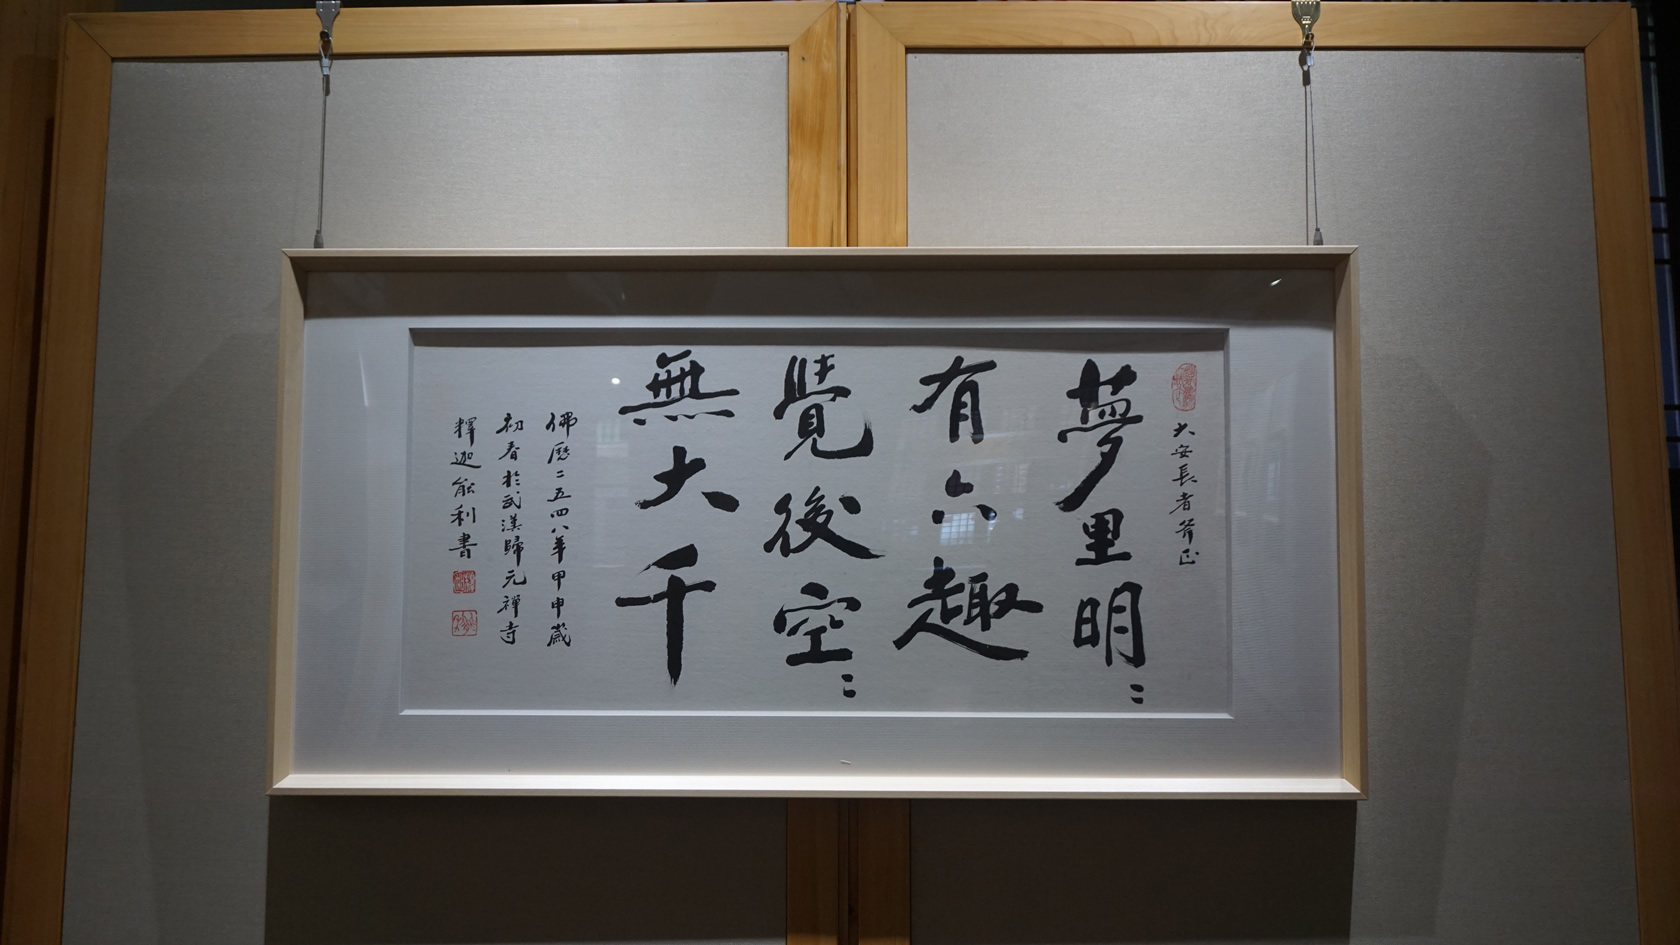 大安長者斧正
夢里明〻
有六趣
覺後空〻
無大千
佛歷二五四八年甲申歲
初春於武漢歸元禪寺
釋迦能利書